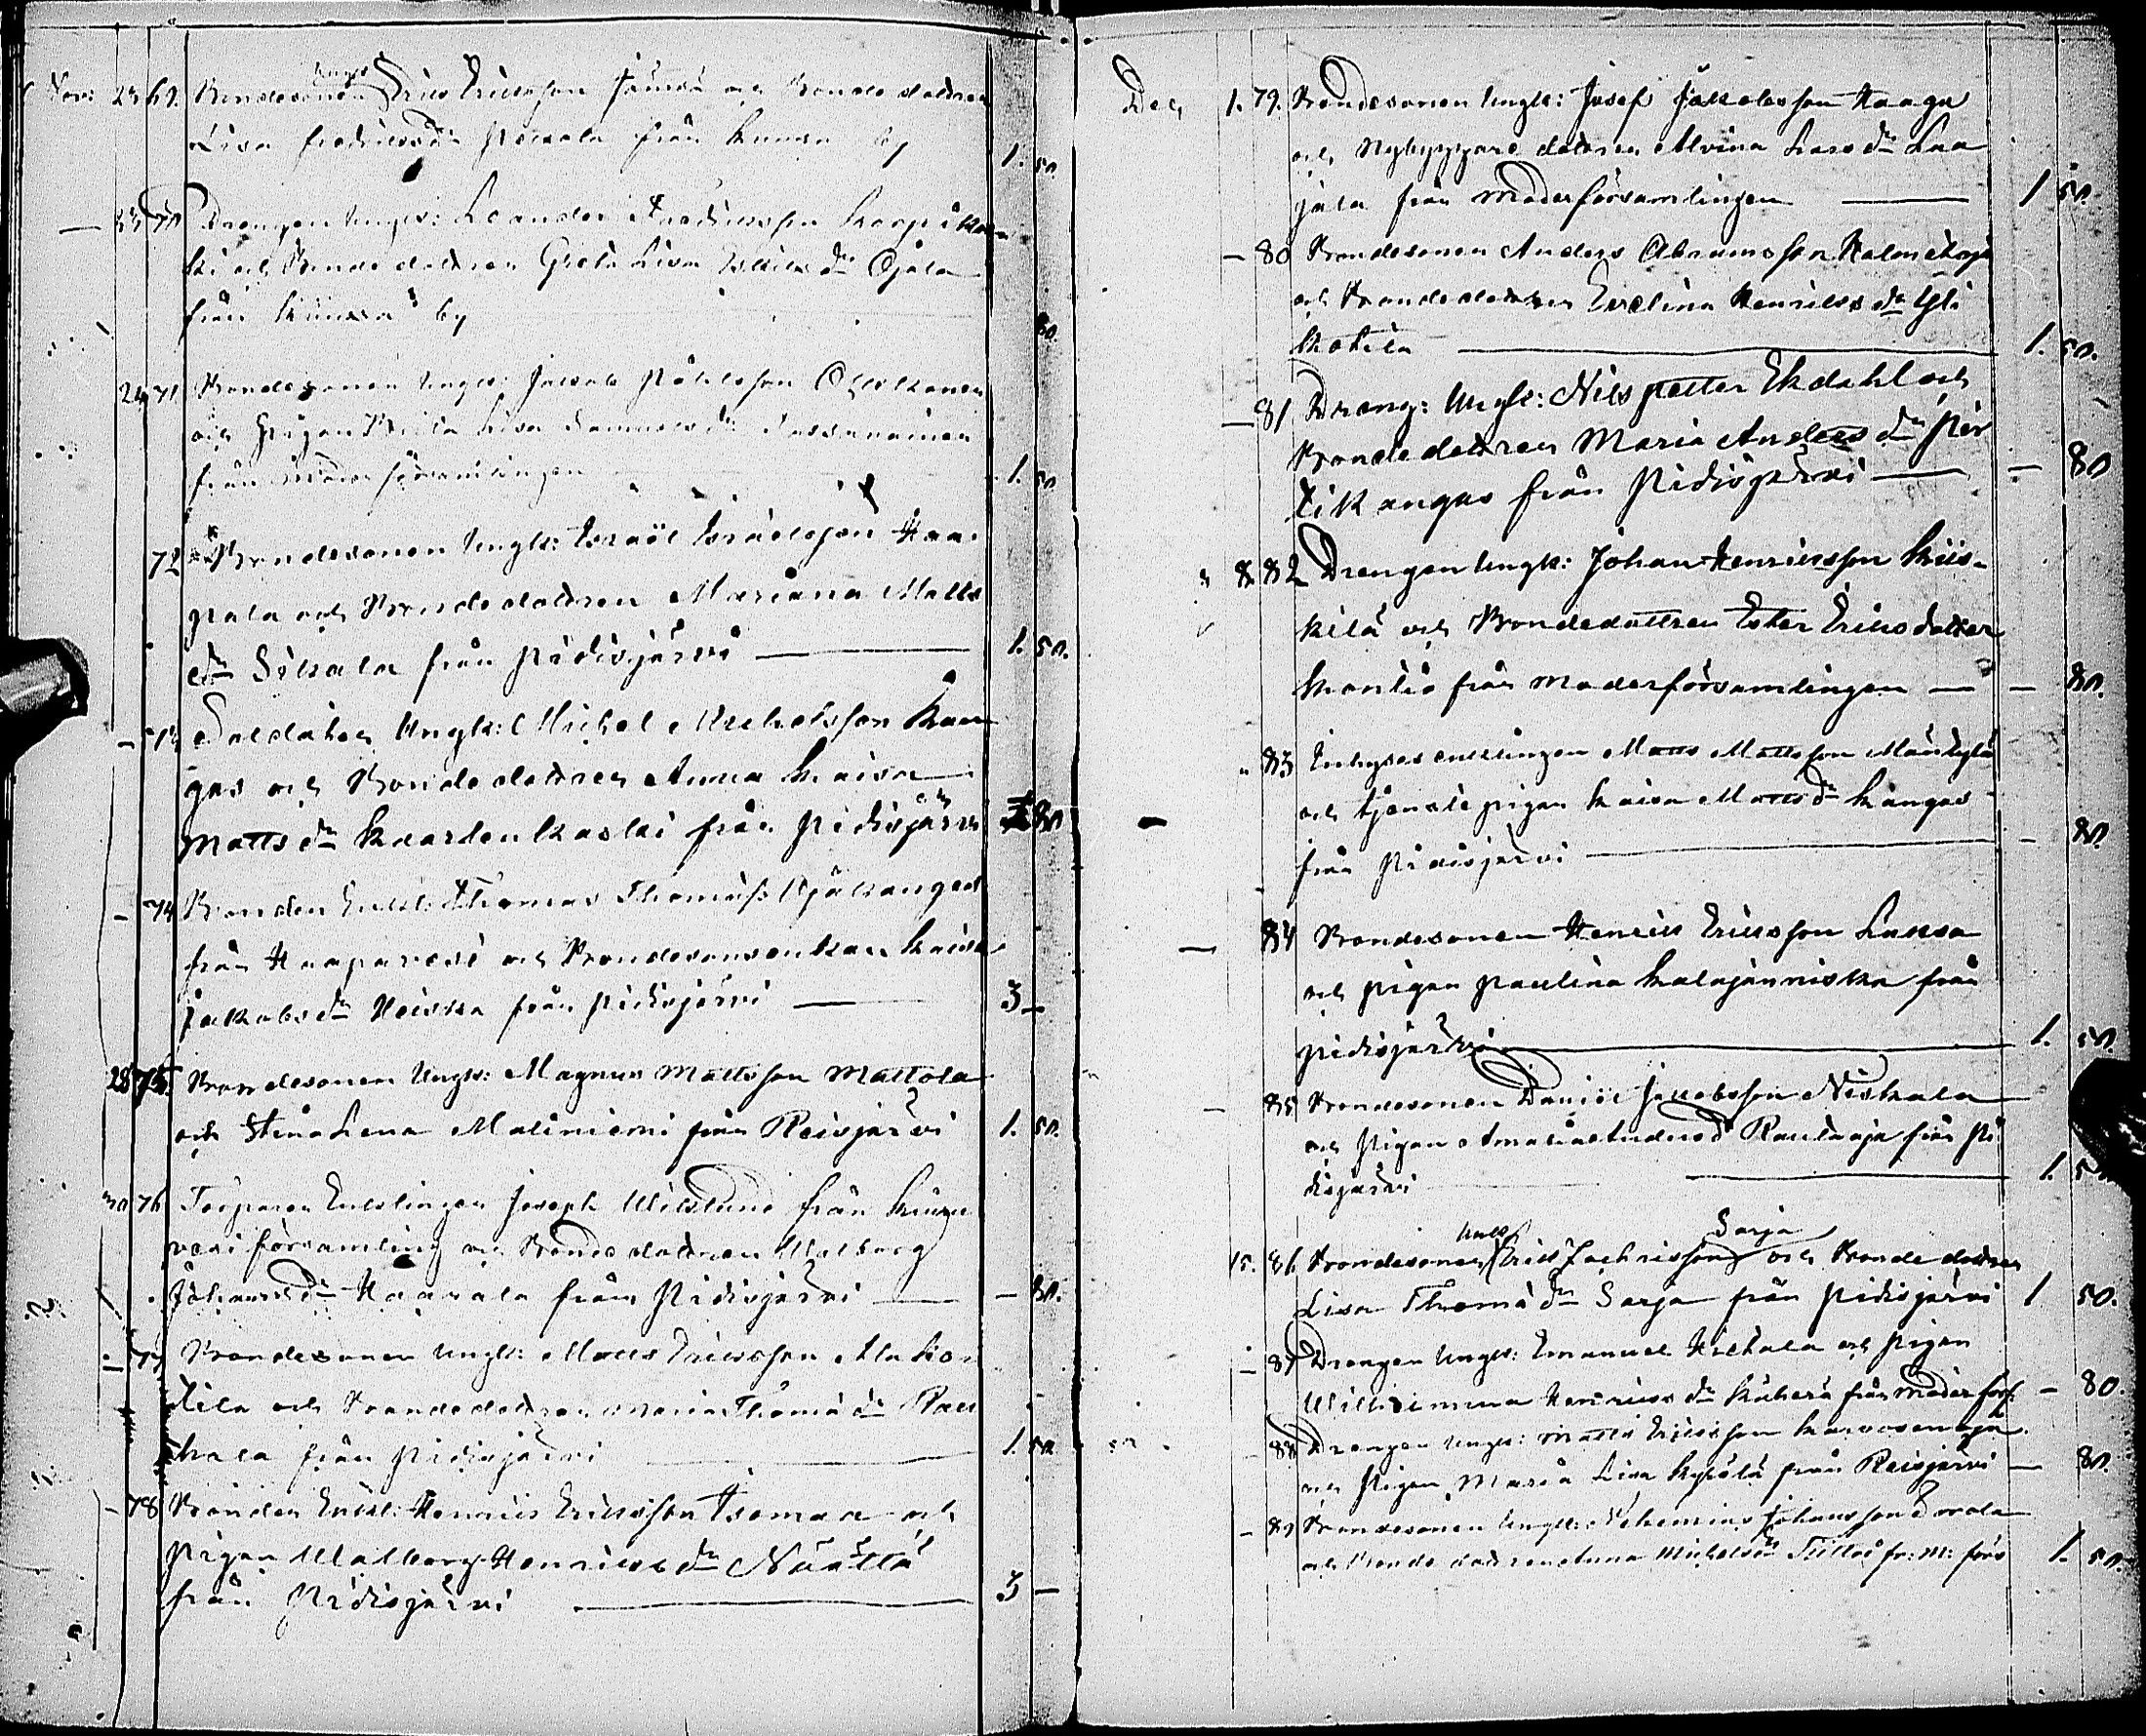 Nov: 23 69. Bondesonen Ungk: Eric Ericsson Jämsä och Bonde dottren
Lisa Fredricsdr Pessala från by 1. 50.
— 23 70 Drengen Ungk: Leander Fredricsson Karpika-
ki och Bonde dottren Greta Lisa dr Ojala
från by 80.
24 71 Bondesonen Ungk: Jacob
och Pigan Brita Lisa Samuels dr
från Moder församlingen 1. 50
72 Bondesonen Ungk: Israël Israelsson Haa-
pala och Bonde dottren Mariana Matts
dr Sikala från Pidisjärvi — 1. 50.
— 73 Soldaten Ungk: Michel Michelsson Kan
gas och Bonde dottren Anna Kaisa
Matts dr Kaarlenkaski från Pidisjärvi 80
— 74 Bonden Enkl: Thomas Thomass: Ojakangas
från Haapavesi och Bondesonsenkan Kaisa
Jakobs dr Heiska från Pidisjärvi — 3 —
28 75. Bondesonen Ungk: Magnus Mattsson Mattola
och Stina Lena Maliniemi från Reisjärvi 1. 50.
30 76 Torparen Enklingen Joseph Wiklund från Kiuru
vesi församling och Bonde dottren Walborg
Johans dr Haarala från Pidisjärvi — — 80.
— 77 Bondesonen Ungk: Matts Ericsson Ala Ko-
tila och Bondedottren Maria Thoma dr Rau
hala från Pidisjärvi — 1. 50
— 78 Bonden Enkl: Henric Ericsson Isomaa och
Pigan Walborg Henrics dr Näättä
från Pidisjärvi — 3 —
Dec 1. 79. Bondesonen Ungk: Josef Jakobsson Haaga
och Nybyggare dottren Alvina Lars dr Laa
jala från Moderförsamlingen — 1 50.
— 80 Bondesonen Anders Abramsson
och Bondedottren Evelina Henriks dr Yli
Kotila — 1. 50.
— 81 Dreng: Ungk: Nils Petter Ekdahl och
Bonde dottren Maria Anders dr Pir
tikangas från Pidisjärvi — — 80
" 8 82 Drengen Ungk: Johan Henricsson Kiis-
kilä och Bondedottren Ester Ericsdotter
Kontio från Moderförsamlingen — — 80.
" 83 Inhyses enklingen Matts Mattsson Mänkylä
och tjenstepigan Kaisa Matts dr Kangas
från Pidisjärvi — — 80.
— 84 Bondesonen Henric Ericsson Lassa
och pigan Paulina Kalajänniska från
Pidisjärvi — 1. 50.
— 85 Bondesonen Daniel Jacobsson Niskala
och Pigan Amalia Anders d Rautaoja från Pi
disjärvi — 1. 50
15. 86 Bondesonen Ungk: Eric Zachrisson Sarja och Bonde dottren
Lisa Thoma dr Sarja från Pidisjärvi 1 50.
— 87 Drengen Ungk: Emanuel Hihtala och Pigan
Willhemina Henrics dr från Moder förs: — 80.
— 88 Drengen Ungk: Matts Ericsson Karvosenoja
och Pigan Maria Lisa från Reisjärvi — 80.
— 89 Bondesonen Ungk: Nehemias Johansson
och Bonde dottren Anna Michels dr fr: M: förs 1. 50.